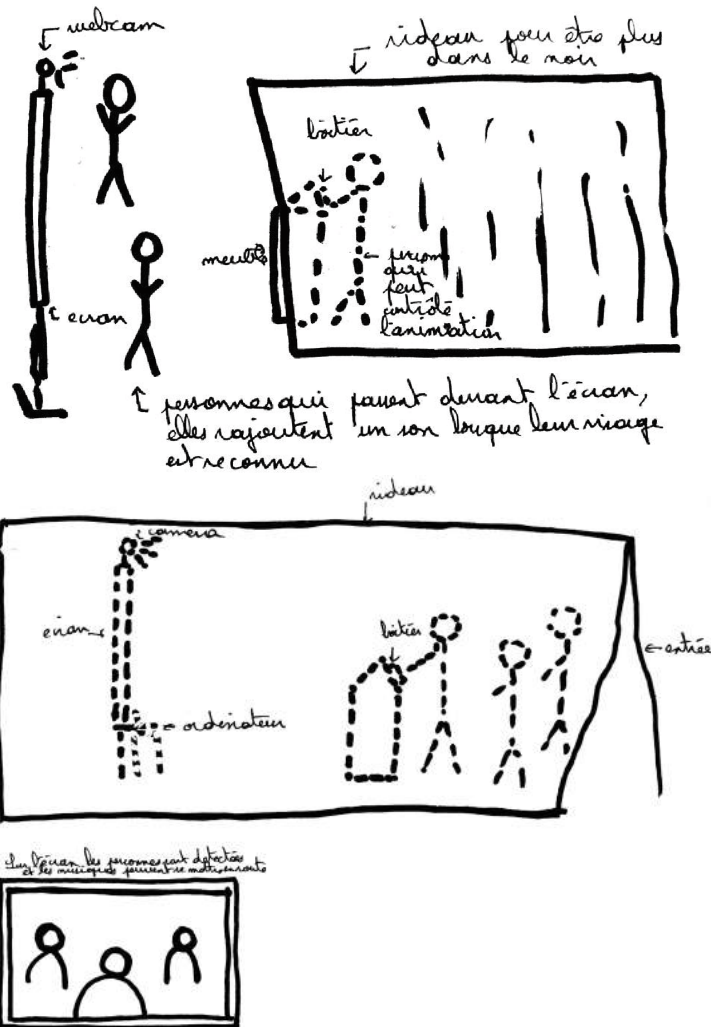 webcam
rideau pour être plus
dans le noir
boîtier
meuble
personne
qui
peut
contrôlé
l'animation
écran
personnes qui passent devant l'écran,
elles rajoutent un son lorque leur visage
est reconnu
rideau
caméra
écran
boîtier
entrée
ordinateur
Sur l'écran les personnes sont détectées
et les musiques peuvent se mettre en route